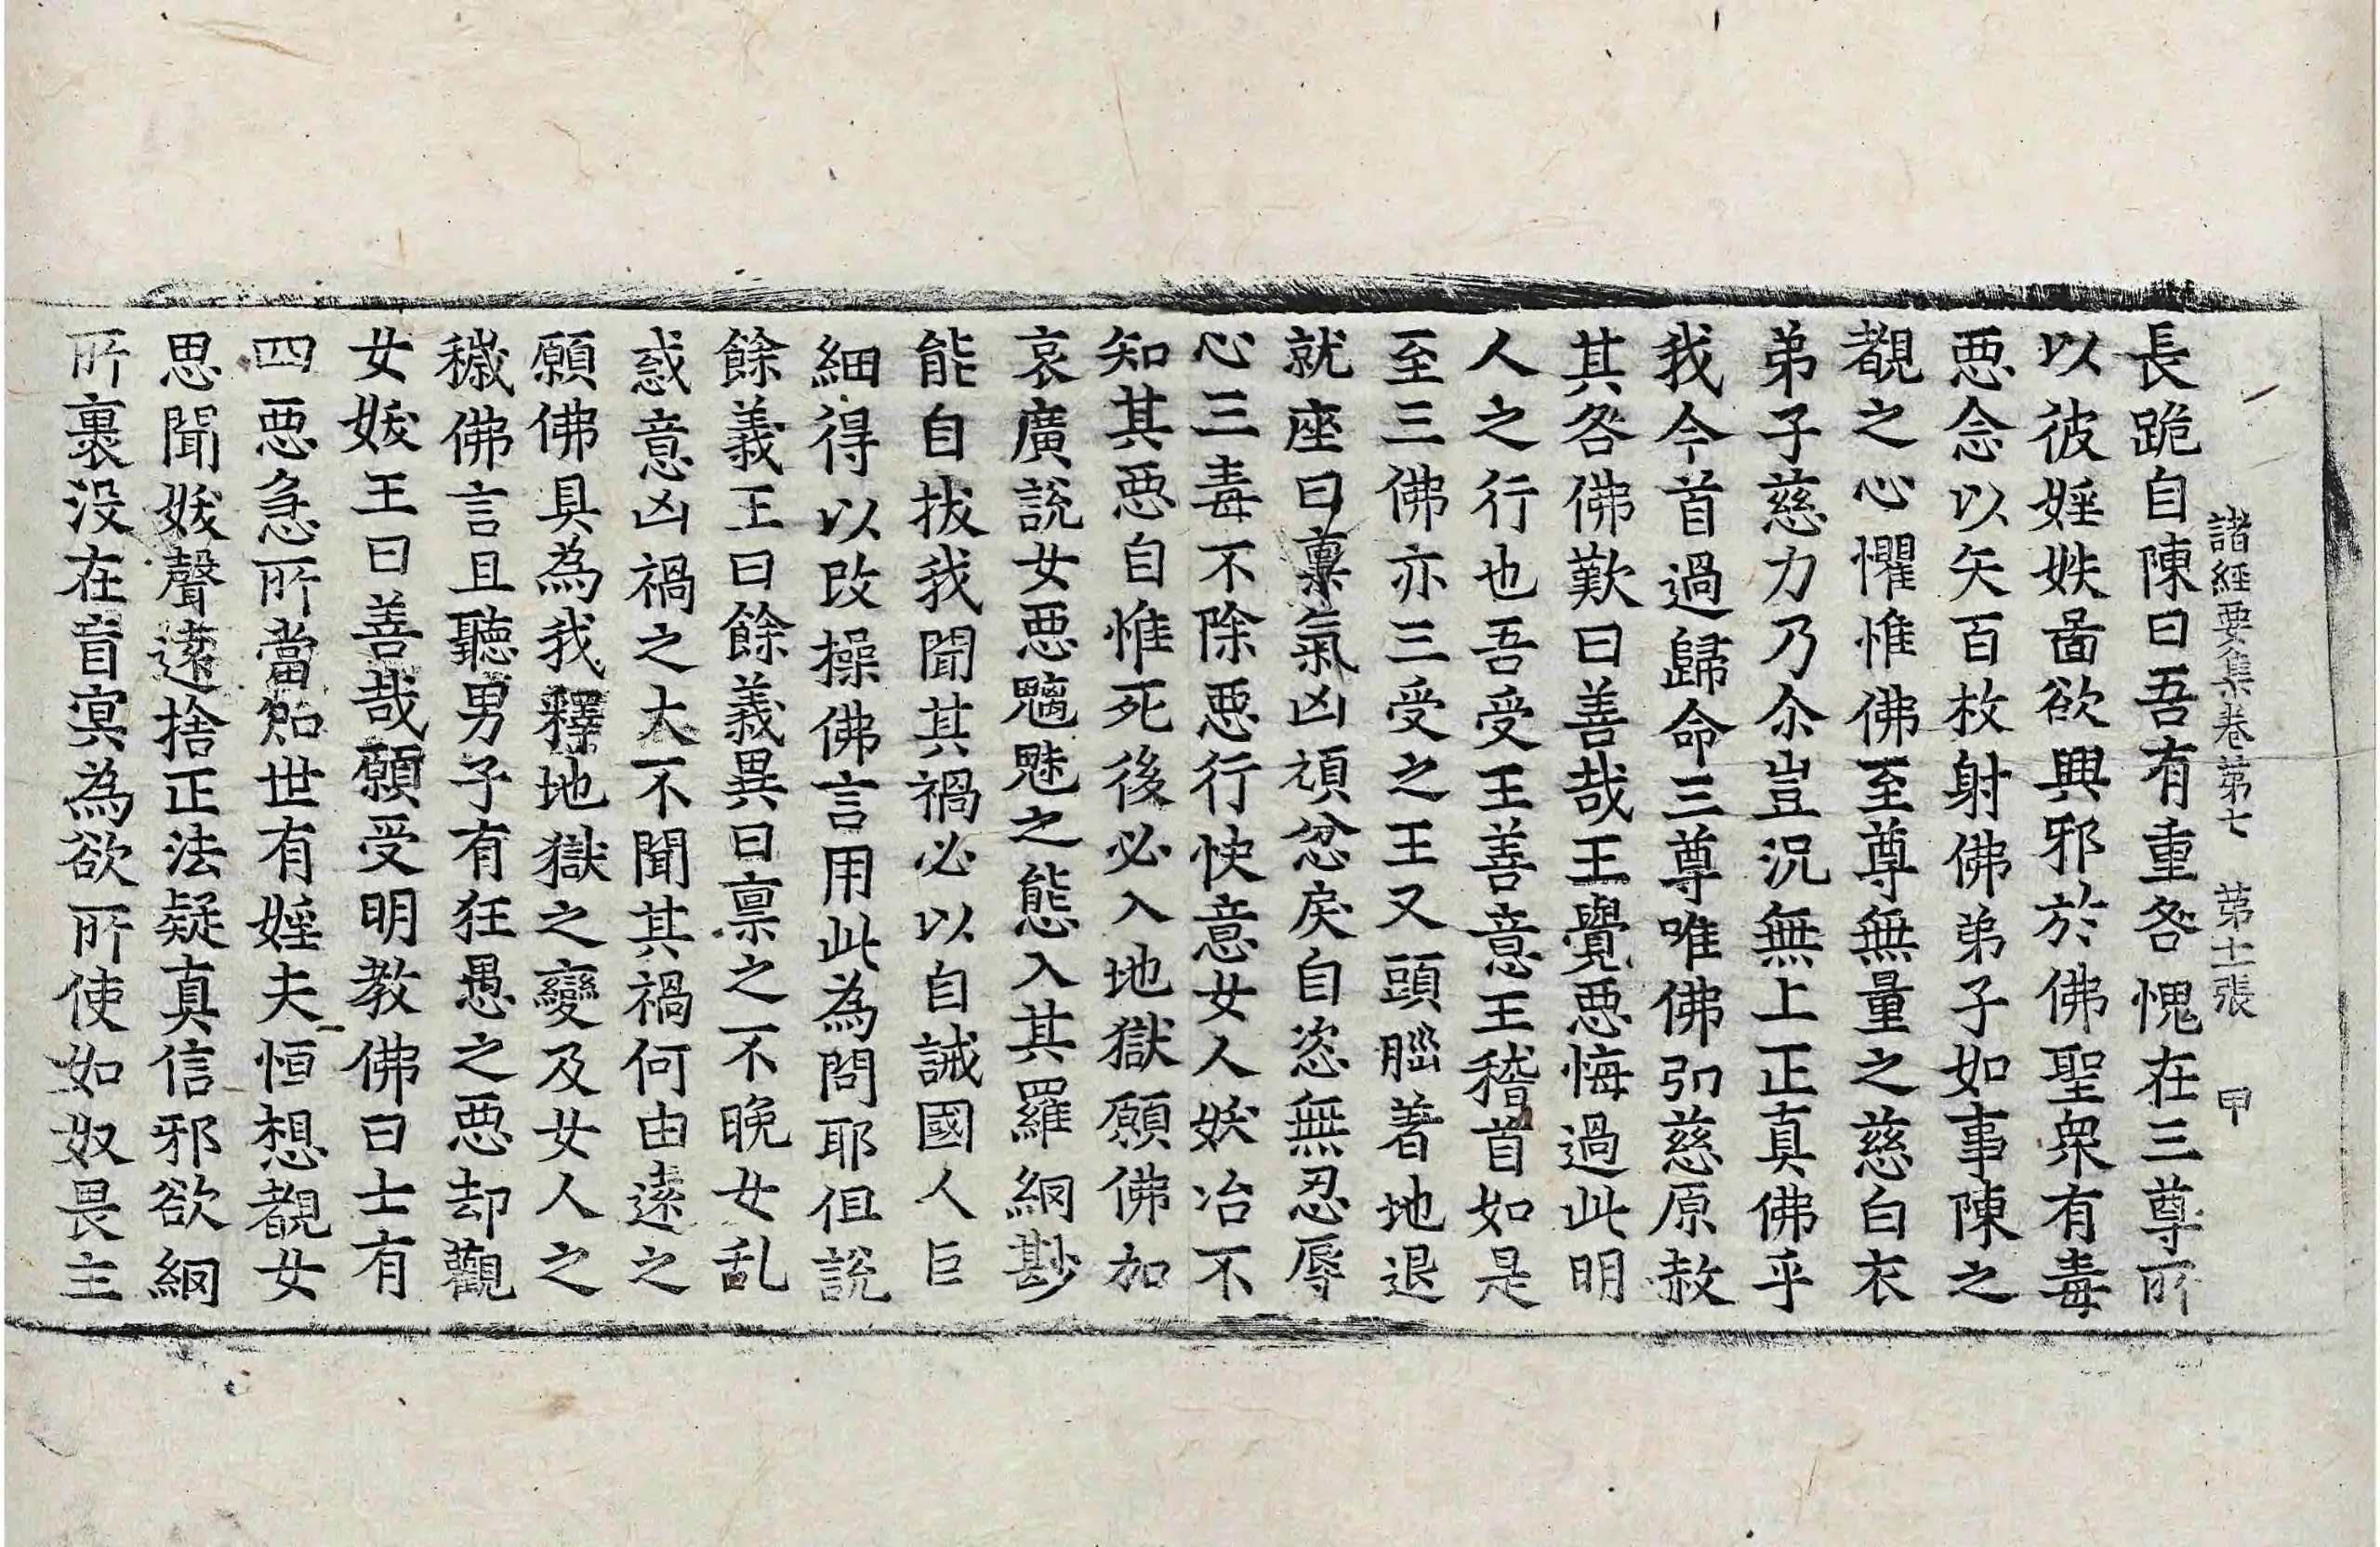 諸經要集卷第七　第十一張　甲
長跪自陳曰吾有重咎愧在三尊所
以彼婬妷啚欲興邪於佛聖衆有毒
惡念以矢百枚射佛弟子如事陳之
覩之心懼惟佛至尊無量之慈白衣
弟子慈力乃尒豈況無上正真佛乎
我今首過歸命三尊唯佛弘慈原赦
其咎佛歎曰善哉王覺惡悔過此明
人之行也吾受王善意王稽首如是
至三佛亦三受之王又頭腦著地退
就座曰稟氣凶頑忿戾自恣無忍辱
心三毒不除惡行快意女人妖冶不
知其惡自惟死後必入地獄願佛加
哀廣說女惡魑魅之態入其羅網尠
能自拔我聞其禍必以自誡國人巨
細得以改操佛言用此為問耶但說
餘義王曰餘義異日稟之不晚女乱
惑意凶禍之大不聞其禍何由遠之
願佛具為我釋地獄之變及女人之
穢佛言且聽男子有狂愚之惡却觀
女妖王曰善哉願受明教佛曰士有
四惡急所當知世有婬夫恒想覩女
思聞妖聲遠捨正法疑真信邪欲網
所裹没在盲冥為欲所使如奴畏主